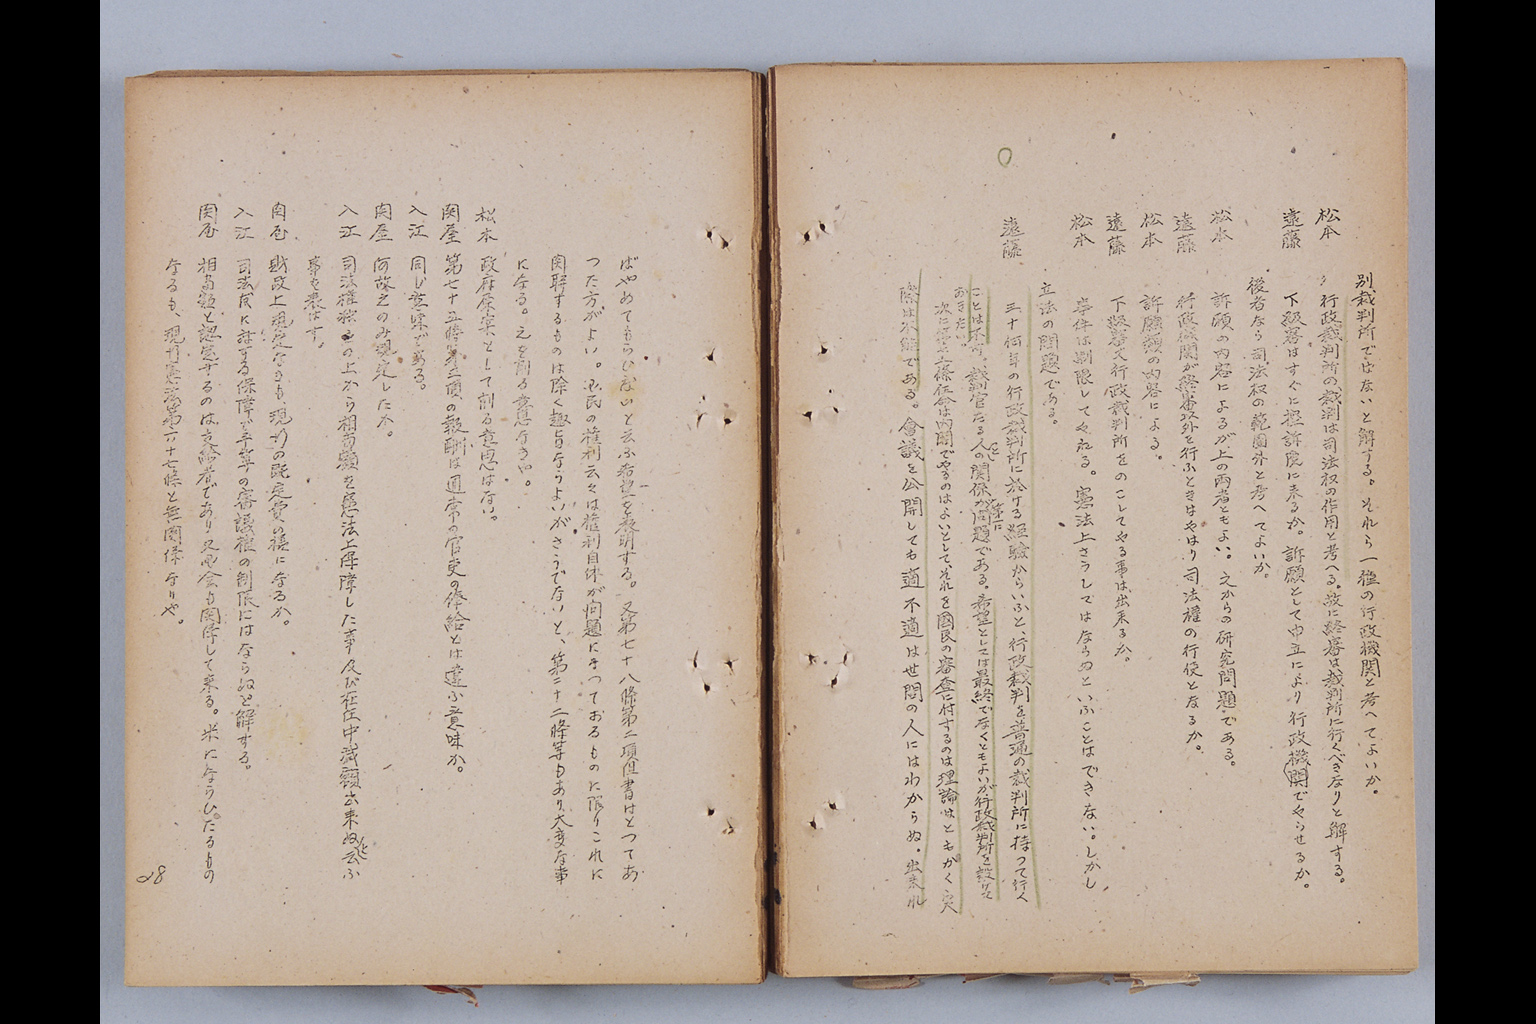 別裁判所ではないと解する。それら一種の行政機関と考へてよいか。
松本 行政裁判所の裁判は司法权の作用と考へる。故に終審は裁判所に行くべきなりと解する。
遠藤 下級審はすぐに控訴院に来るか。訴願として申立により行政機関でやらせるか。
後者なら司法权の範囲外と考へてよいか。
松本 訴願の内容によるが上の両者ともよい。之からの研究問題である。
遠藤 行政機関が終審以外を行ふときはやはり司法権の行使となるか。
松本 訴願の内容による。
遠藤 下級審丈行政裁判所をのこしてやる事は出来るか。
松本 事件は制限してやれる。憲法上さうしてはならぬといふことはできない。しかし
立法の問題である。
遠藤 三十何年の行政裁判所に於する経験からいふと、行政裁判を普通の裁判所に持つて行く
ことは不可。裁判官たる人の関係が第一に問題である。希望としては最終でなくともよいが行政裁判所を設けて
おきたい。
次に 條任命は内閣でやるのはよいとして、それを國民の審査に付するのは理論はともかく実
際は不能である。會議を公開しても適不適は世間の人にはわからぬ。出来れ
ばやめてもらひたいと云ふ希望を表明する。又第七十八條第二項但書はとつてあ
つた方がよい。國民の権利云々は権利自体が問題になつておるものに限りこれに
関聯するものは除く趣旨ならよいがさうでないと、第二十二條等もあり、大変な事
になる。之を削る意思なきや。
松本 政府原案として削る意思はない。
関屋 第七十五條第二項の報酬は通常の官吏の俸給とは違ふ意味か。
入江 同じ意味である。
関屋 何故之のみ規定したか。
入江 司法権独立の上から相当額を憲法上保障した事及び在任中減額出来ぬと云ふ
事を表はす。
関屋 財政上規定なきも、現行の既定費の様になるか。
入江 司法官に対する保障で平等の審議権の制限にはならぬと解する。
関屋 相当額と認定するのは支給者であり又國会も関係して来る。米にならひたるもの
なるも、現行憲法第六十七條と無関係なりや。
28